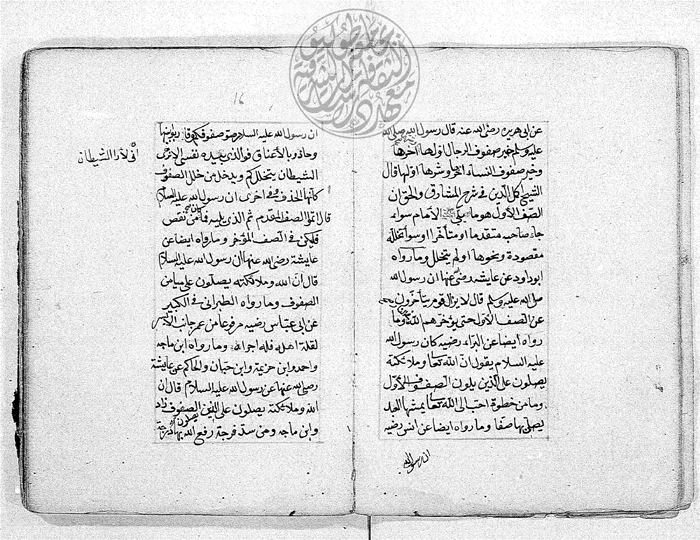 عن ابى هريرة رضى الله عنه قال رسول الله صلى الله
عليه وسلم خير صفوف الرجال اولها وشرها آخرها
وخير صفوف النساء آخرها وشرها اولها قال
الشيخ اكمل الدين فى شرح المشارق والحق ان
الصف الاول هو ما يلى الامام سواء
جاء صاحبه متقدما او متأخرا وسواء تخلله
مقصورة ونحوها او لم يتخلل وما رواه
ابو داود عن عايشة رضى عنها ان رسول الله
صلى الله عليه وسلم قال لا يزال قوم يتأخرون
عن الصف الاول حتى يؤخرهم الله وما
رواه ايضا عن البراء رضيه كان رسول الله
عليه السلام يقول ان الله تعالى وملائكته
يصلون على الذين يلون الصفوف الاول
وما من خطوة احب الى الله تعالى من خطوة يمشيها العبد
يصل بها صفا وما رواه ايضا عن انس رضيه
ان رسول الله
16
ان رسول الله عليه السلام قال رصوا صفوفكم وقاربوا بينها
وحاذوا بالاعناق فوالذى نفسى بيده انى لارى
الشيطان يتخللكم ويدخل من خلل الصفوف
كانها الحذف وفى اخرى ان رسول الله عليه السلام
قال اتموا الصف المقدم ثم الذى يليه فما كان من نقص
فليكن فى الصف المؤخر وما رواه ايضا عن
عايشة رضى الله عنها ان رسول الله عليه السلام
قال ان الله وملائكته يصلون على ميامن
الصفوف وما رواه الطبرانى فى الكبير
عن ابى عباس رضيه مرفوعا من عمر جانب الايسر
لقلة اهله فله اجران وما رواه ابن ماجه
واحمد وابن خزيمة وابن حبان والحاكم عن عايشة
رضى الله عنها عن رسول الله عليه السلام قال ان
الله وملائكته يصلون على الذين يصلون الصفوف زاد
وابن ماجه ومن سد فرجة رفع الله بها درجة
انى لارا الشيطان